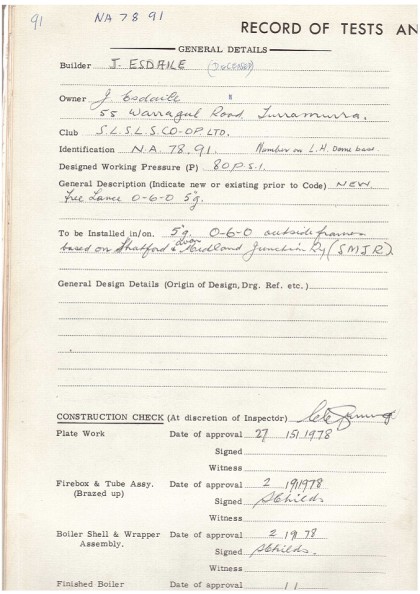 91
NA 78 91
RECORD OF TESTS AN
GENERAL DETAILS
Builder J. ESDAILE (DECEASED)
Owner J Esdaile
55 Warragul Road, Turramurra.
Club S.L.S.L.S. CO-OP. LTD.
Identification N.A. 78.91. Number on L.H. Dome base.
Designed Working Pressure (P) 80 P.S.I.
General Description (Indicate new or existing prior to Code) NEW.
Free Lance 0-6-0 5"g.
To be Installed in/on. 5"g. 0-6-0 outside frames
based on Stratford & Midland Junction Ry (SMJR).
General Design Details (Origin of Design, Drg. Ref. etc.)
CONSTRUCTION CHECK (At discretion of Inspector)
Plate Work Date of approval 27 / 5 / 1978
Signed
Witness
Firebox & Tube Assy. Date of approval 2 / 9 / 1978
(Brazed up) Signed SChilds
Witness
Boiler Shell & Wrapper Date of approval 2 / 9 / 78
Assembly. Signed SChilds.
Witness
Finished Boiler Date of approval / /